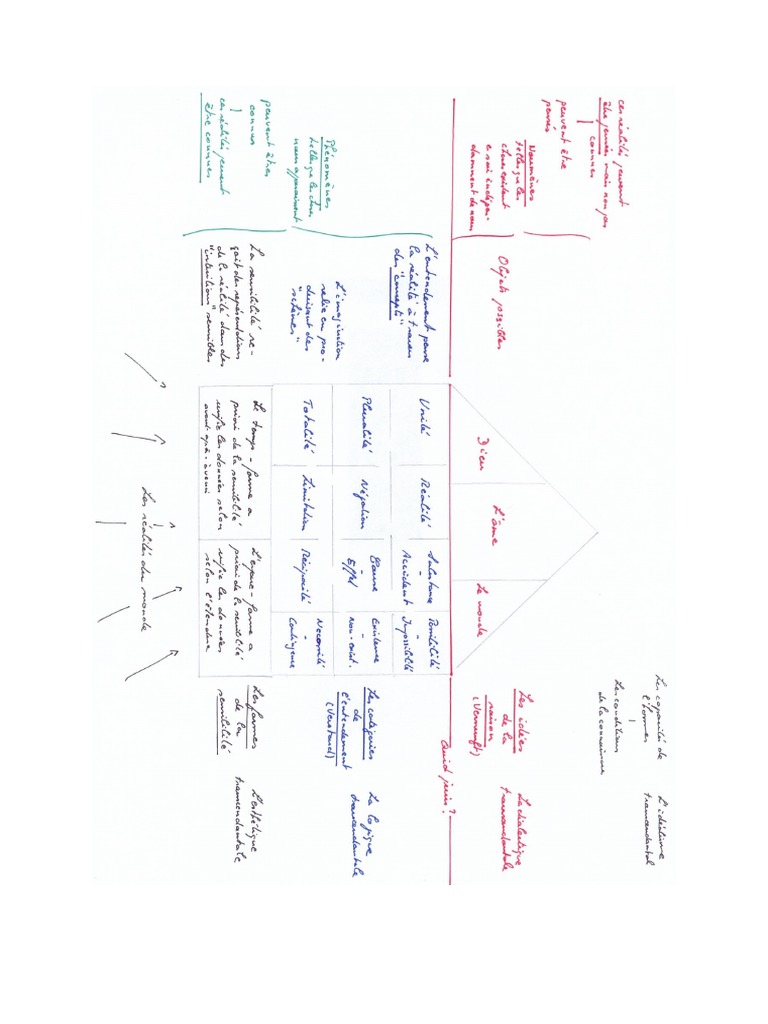 ces réalités peuvent
être pensées mais non pas
connues
peuvent être
pensés
Noumènes
telles que les
choses existent
en soi indépen-
damment de nous
Objets possibles
Dieu
L'âme
Le monde
Les idées
de la
raison
(Vernunft)
La dialectique
transcendantale
Les capacités de
l'homme
Les conditions
de la connaissance
L'idéalisme
transcendantal
Quid juris?
Phénomènes
telles que les choses
nous apparaissent
peuvent être
connus
ces réalités peuvent
être connues
L'entendement pense
la réalité à travers
des "concepts"
L'imagination
relie en pro-
duisant des
"schèmes"
La sensibilité re-
çoit des représentations
de la réalité dans des
"intuitions" sensibles
Unité
Réalité
Substance
-
Accident
Possibilité
-
Impossibilité
Pluralité
Négation
Cause
-
Effet
Existence
-
Non-exist.
Totalité
Limitation
Réciprocité
Nécessité
-
Contingence
Les catégories
de
l'entendement
(Verstand)
La logique
transcendantale
Le temps - forme a
priori de la sensibilité
unifie les données selon
avant-après-avenir
L'espace - forme a
priori de la sensibilité
unifie les données
selon l'étendue
Les formes
de la
sensibilité
L'esthétique
transcendantale
Les réalités du monde